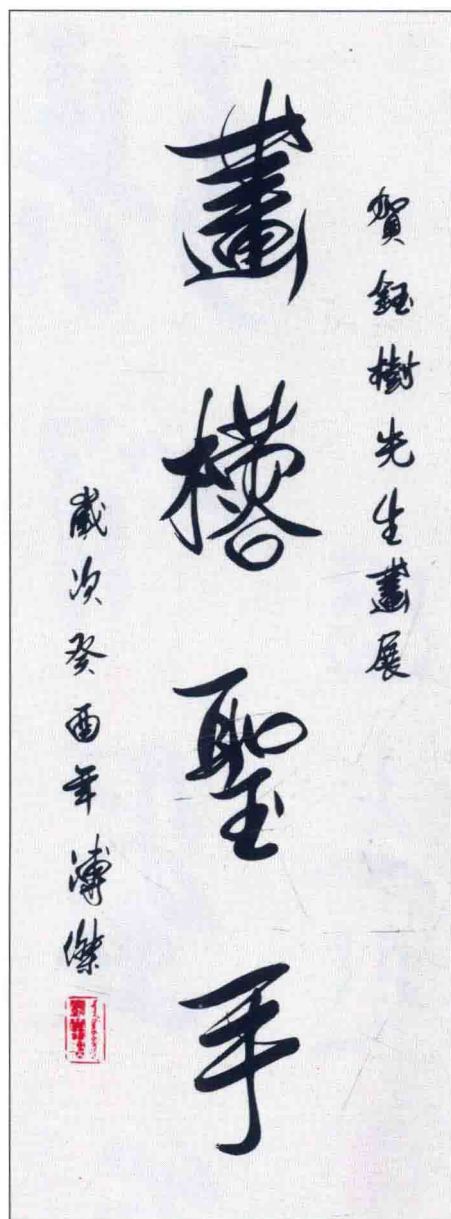 賀鈺樹先生畫展
畫聖手
歲次癸酉年溥傑